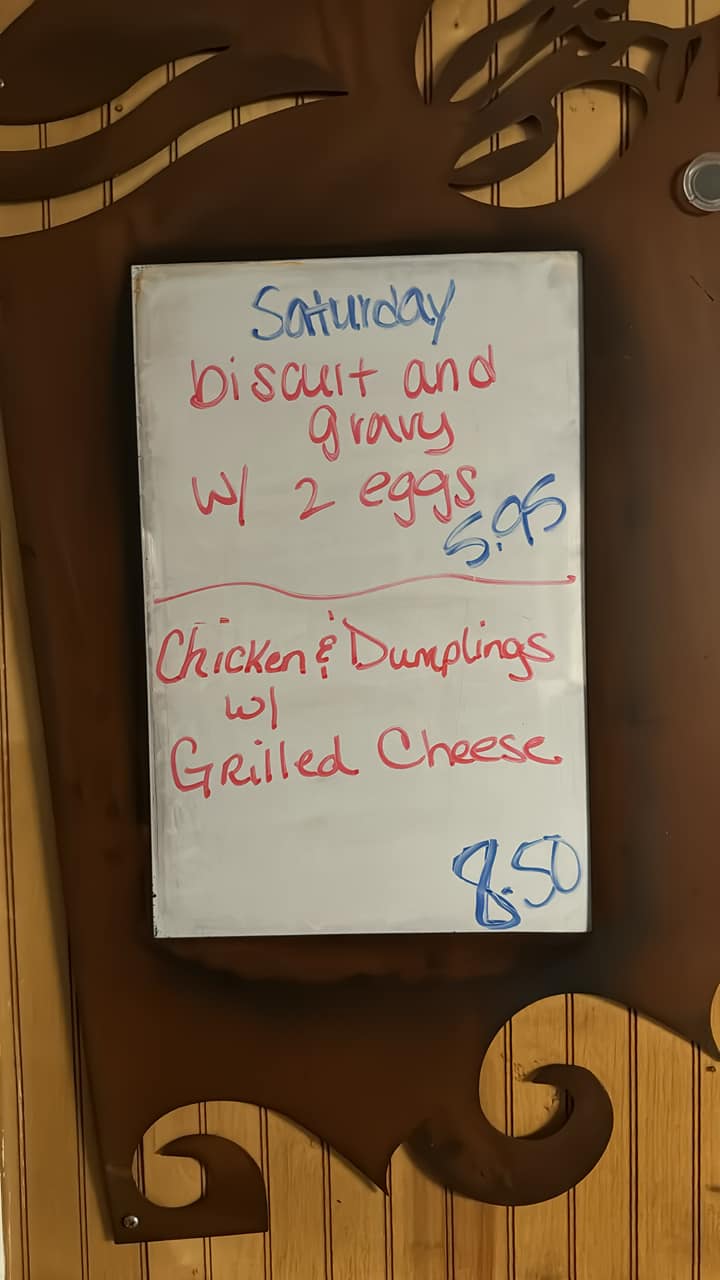 Saturday
biscuit and
gravy
w/ 2 eggs
5.95
Chicken & Dumplings
w/
Grilled Cheese
8.50